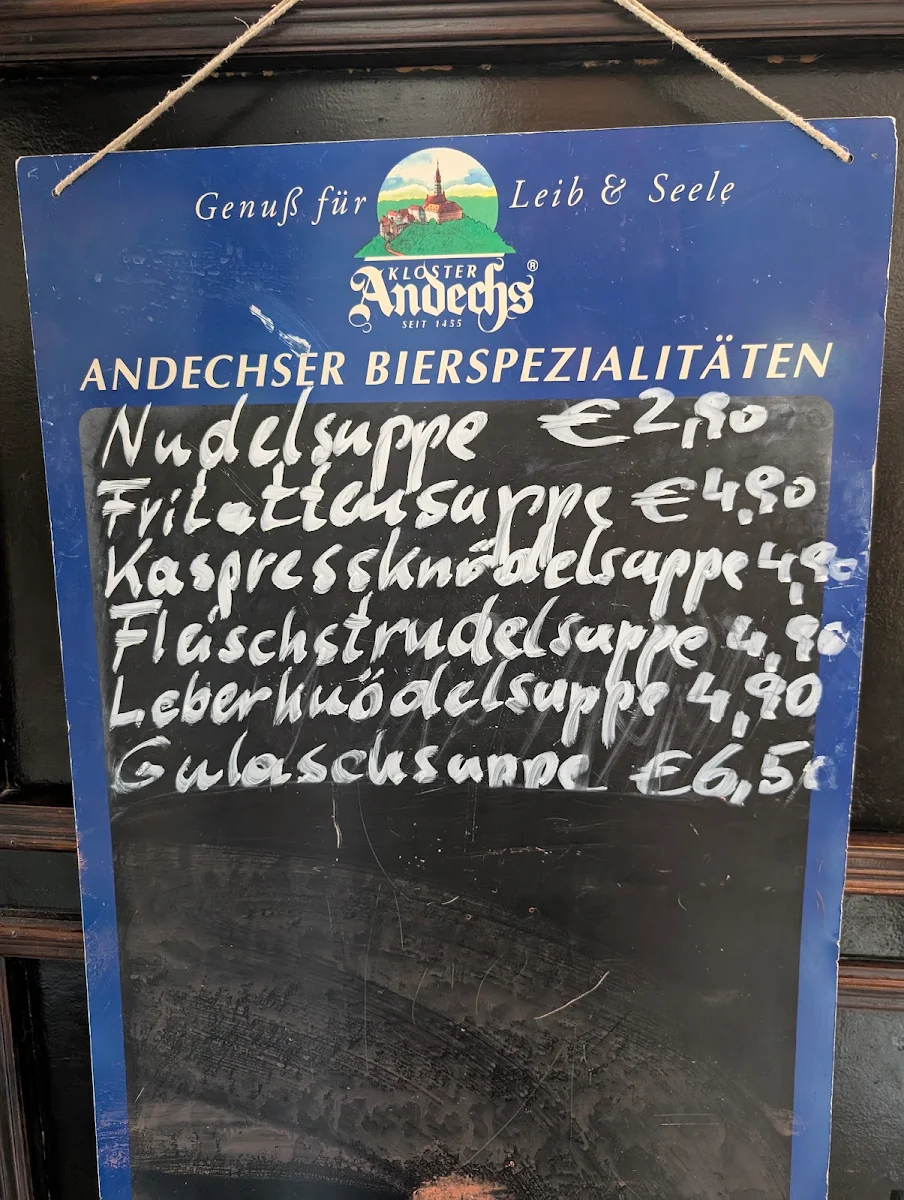 Genuß für Leib & Seele
KLOSTER
Andechs®
SEIT 1455
ANDECHSER BIERSPEZIALITÄTEN
Nudelsuppe € 2,90
Fritattensuppe € 4,90
Kaspressknödelsuppe 4,90
Fläschstrudelsuppe 4,90
Leberknödelsuppe 4,90
Gulaschsuppe € 6,50